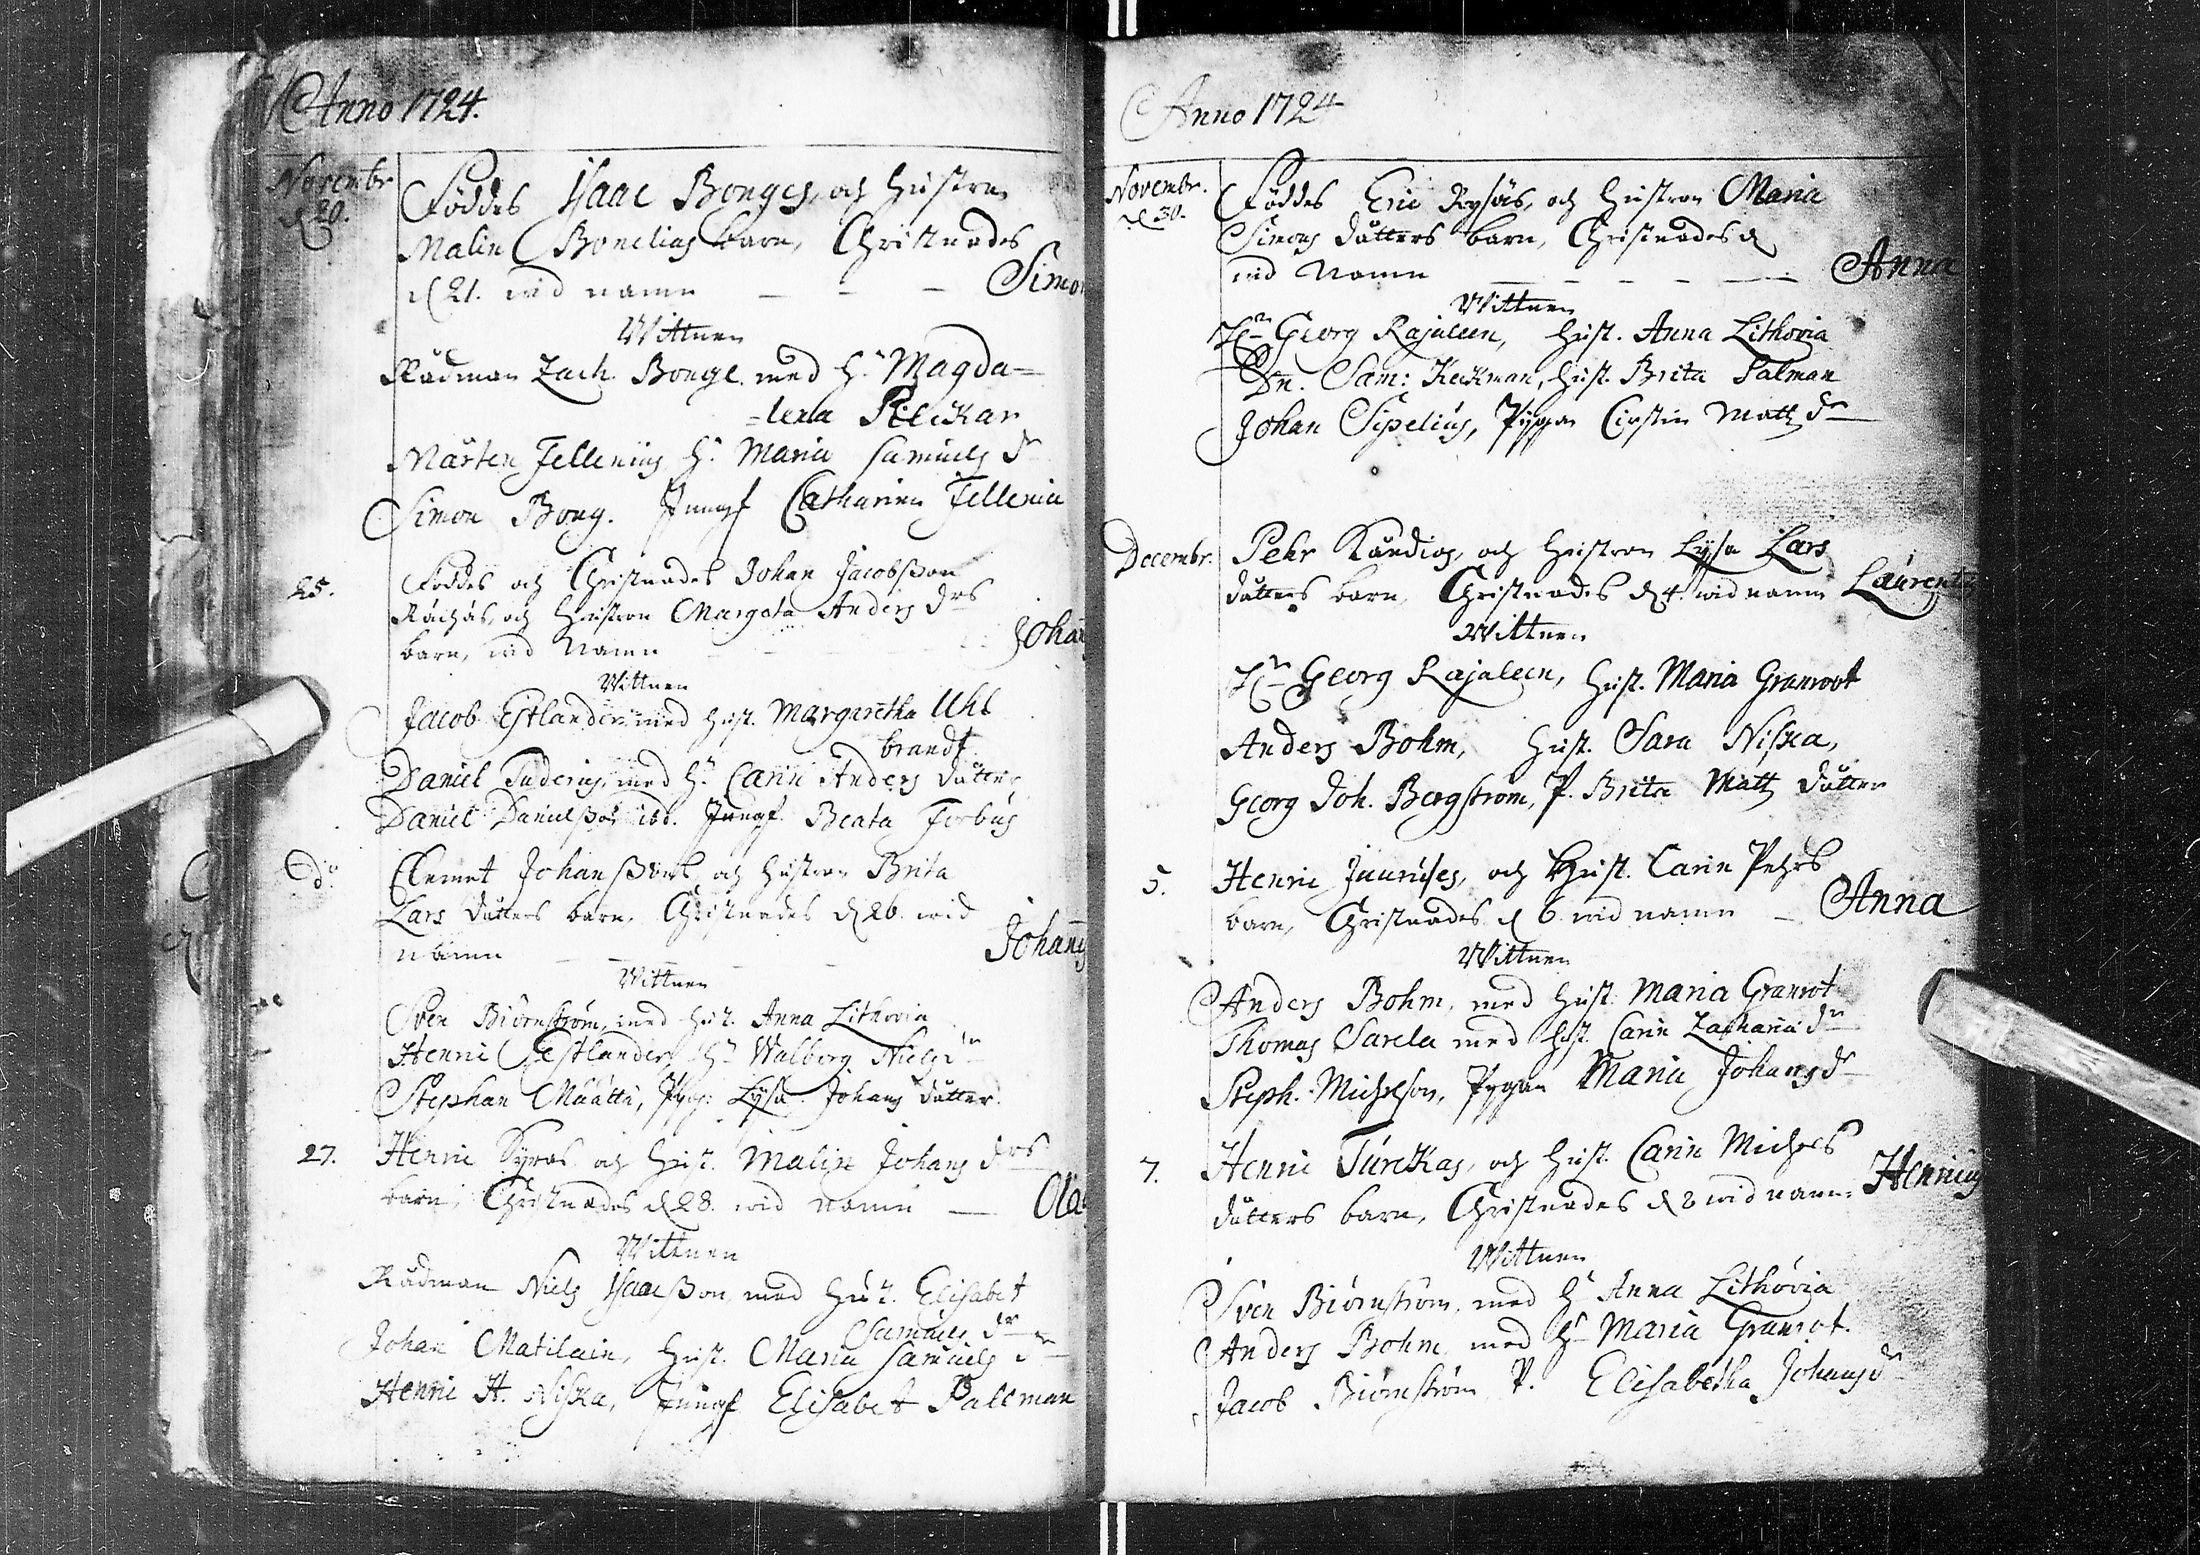 Anno 1724.
Novembr. Föddes Isaac Bonges, och hustrun
d 20. Malin Bonelius barn, Christnades
d 21. wid namn — — — Simon
Wittnen
Rådman Zach. Bonge med H. Magda=
=lena Pileckar
Mårten Fellenius H. Maria Samuels dr
Simon Bong. Jungf Catharina Fellenia
25. Föddes och Christnades Johan Jacobsson
och hustrun Margeta Anders drs
barn, wid Namn Johan
Wittnen
Jacob Estlander med hust. Margaretha Uhl
brandt.
Daniel Tuderus, med H. Carin Anders dåtter
Daniel Danielsson ibd. Jungf. Beata Forbus
do. Clemet Johanssons och hustrun Brita
Lars dåtters barn, Christnades d 26. wid
namn — — — Johannes
Wittnen
Sven Biörnström, med hust. Anna Lithovia
Henric Estlander, H. Walborg Niels dr
Stephan Määttä, Pyg: Lysa Johans dåtter.
27. Henric och hust. Malin Johans drs
barn, Christnades d 28. wid namn — Ola
Wittnen
Rådman Niels Isaacsson med hust. Elisabet
Samuels dr
Johan Matilain, hust. Maria Samuels dr
Henric H. Niska, Jungf Elisabet Pallman
Anno 1724
Novembr. Föddes Eric Rysäs, och hustrun Maria
d 30. Simons dåtters barn, Christnades d
wid Namn — — — Anna
Wittnen
Hr Georg Rajaleen, hust. Anna Lithovia
Dn. Sam: Keckman, hust. Brita Salman
Johan Sipelius, Pygan Cirstin Matts dr
Decembr. Pehr Kändiös, och hustrun Lysa Lars
dåtters barn, Christnades d 4. wid namn Laurentz
Wittnen
Hr Georg Rajaleen, hust. Maria Granroot
Anders Bohm, hust. Sara Niska,
Georg Joh. Bergström, P. Brita Matts dåtter
5. Henric Juurises, och hust. Carin Pehrs
barn, Christnades d 6. wid namn — Anna
Wittnen
Anders Bohm, med hust. Maria Granrot
Thomas Sarela med hust. Carin Zacharia dr
Steph. Michelson, Pygan Maria Johans dr
7. Henric Turckas, och hust. Carin Michels
dåtters barn, Christnades d 8 wid namn Henricus
Wittnen
Sven Biörnström, med H. Anna Lithovia
Anders Bohm, med H. Maria Granrot.
Jacob Biörnström P. Elisabetha Johans dr